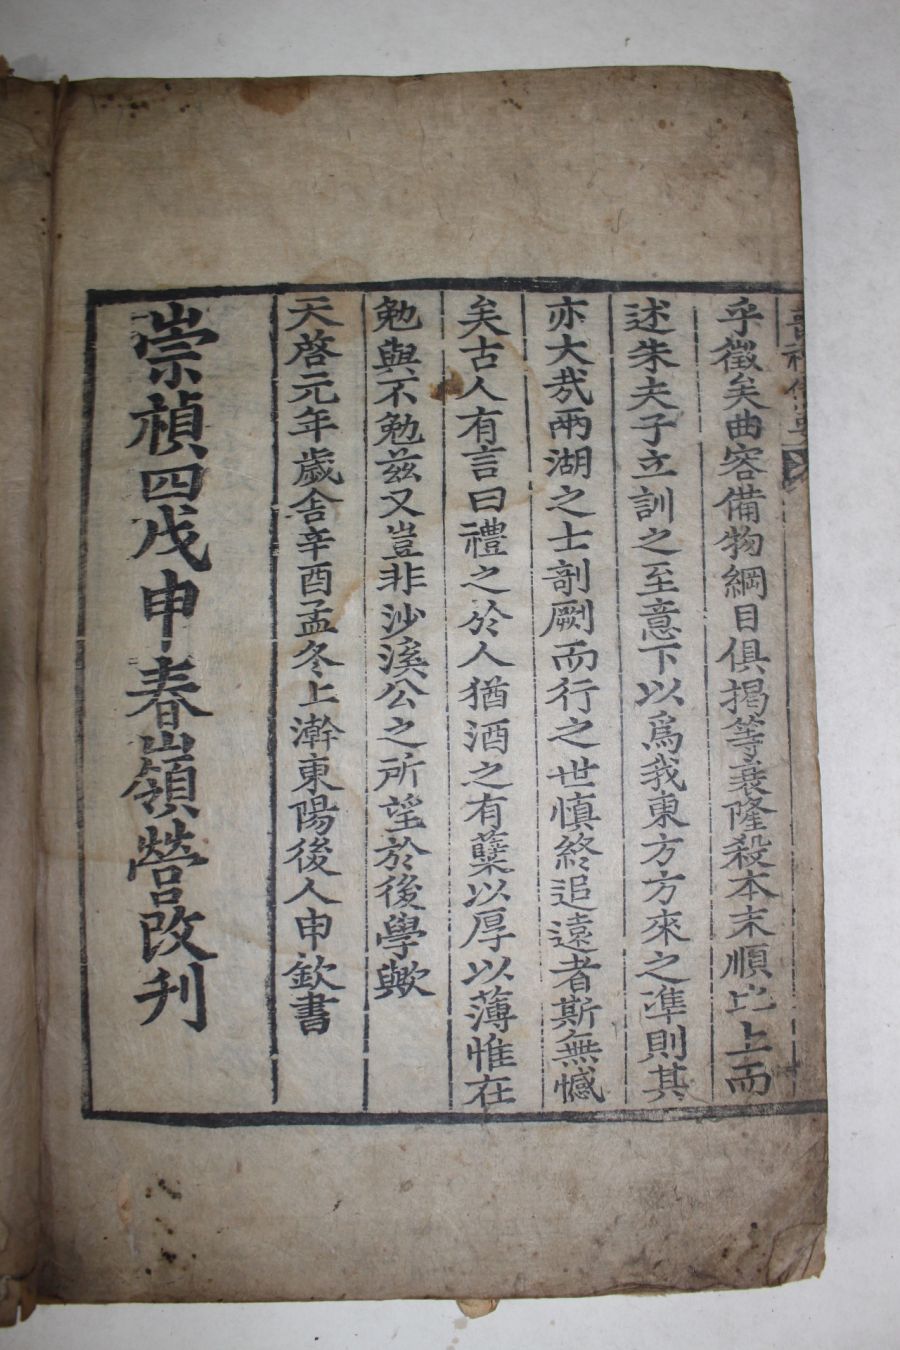 乎徵矣曲容備物綱目俱揭等衰隆殺本末順比上而
述朱夫子立訓之至意下以爲我東方方來之準則其
亦大哉兩湖之士剞劂而行之世愼終追遠者斯無憾
矣古人有言曰禮之於人猶酒之有蘖以厚以薄惟在
勉與不勉玆又豈非沙溪公之所望於後學歟
天啓元年歲舍辛酉孟冬上澣東陽後人申欽書
崇禎四戊申春嶺營改刋